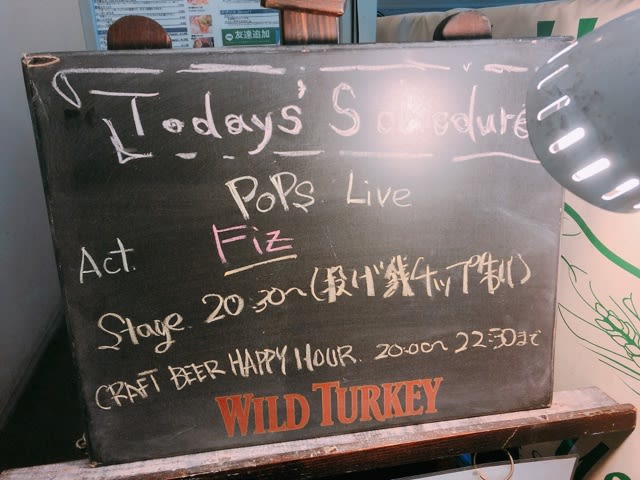 友達追加
Todays' Schedure
PoPs Live
Act. Fiz
Stage 20:30〜(投げ銭チップ制)
CRAFT BEER HAPPY HOUR 20:00〜22:30まで
WILD TURKEY